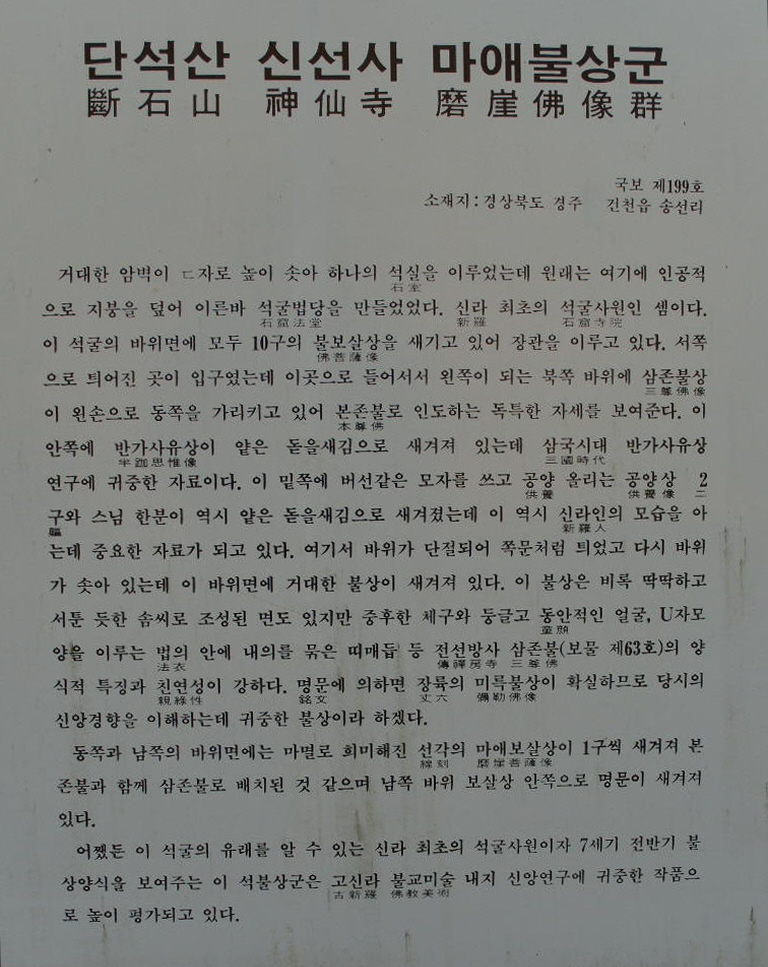 단석산 신선사 마애불상군
斷石山 神仙寺 磨崖佛像群
국보 제199호
소재지: 경상북도 경주 건천읍 송선리
거대한 암벽이 ㄷ자로 높이 솟아 하나의 석실을 이루었는데 원래는 여기에 인공적
石室
으로 지붕을 덮어 이른바 석굴법당을 만들었었다. 신라 최초의 석굴사원인 셈이다.
石窟法堂 新羅 石窟寺院
이 석굴의 바위면에 모두 10구의 불보살상을 새기고 있어 장관을 이루고 있다. 서쪽
佛菩薩像
으로 틔어진 곳이 입구였는데 이곳으로 들어서서 왼쪽이 되는 북쪽 바위에 삼존불상
三尊佛像
이 왼손으로 동쪽을 가리키고 있어 본존불로 인도하는 독특한 자세를 보여준다. 이
本尊佛
안쪽에 반가사유상이 얕은 돋을새김으로 새겨져 있는데 삼국시대 반가사유상
半跏思惟像 三國時代
연구에 귀중한 자료이다. 이 밑쪽에 버선같은 모자를 쓰고 공양 올리는 공양상 2
供養 供養像 二
구와 스님 한분이 역시 얕은 돋을새김으로 새겨졌는데 이 역시 신라인의 모습을 아
軀 新羅人
는데 중요한 자료가 되고 있다. 여기서 바위가 단절되어 쪽문처럼 틔었고 다시 바위
가 솟아 있는데 이 바위면에 거대한 불상이 새겨져 있다. 이 불상은 비록 딱딱하고
서툰 듯한 솜씨로 조성된 면도 있지만 중후한 체구와 둥글고 동안적인 얼굴, U자모
童顔
양을 이루는 법의 안에 내의를 묶은 띠매듭 등 전선방사 삼존불(보물 제63호)의 양
法衣 傳禪房寺 三尊佛
식적 특징과 친연성이 강하다. 명문에 의하면 장륙의 미륵불상이 확실하므로 당시의
親緣性 銘文 丈六 彌勒佛像
신앙경향을 이해하는데 귀중한 불상이라 하겠다.
동쪽과 남쪽의 바위면에는 마멸로 희미해진 선각의 마애보살상이 1구씩 새겨져 본
線刻 磨崖菩薩像
존불과 함께 삼존불로 배치된 것 같으며 남쪽 바위 보살상 안쪽으로 명문이 새겨져
있다.
어쨌든 이 석굴의 유래를 알 수 있는 신라 최초의 석굴사원이자 7세기 전반기 불
상양식을 보여주는 이 석불상군은 고신라 불교미술 내지 신앙연구에 귀중한 작품으
古新羅 佛敎美術
로 높이 평가되고 있다.